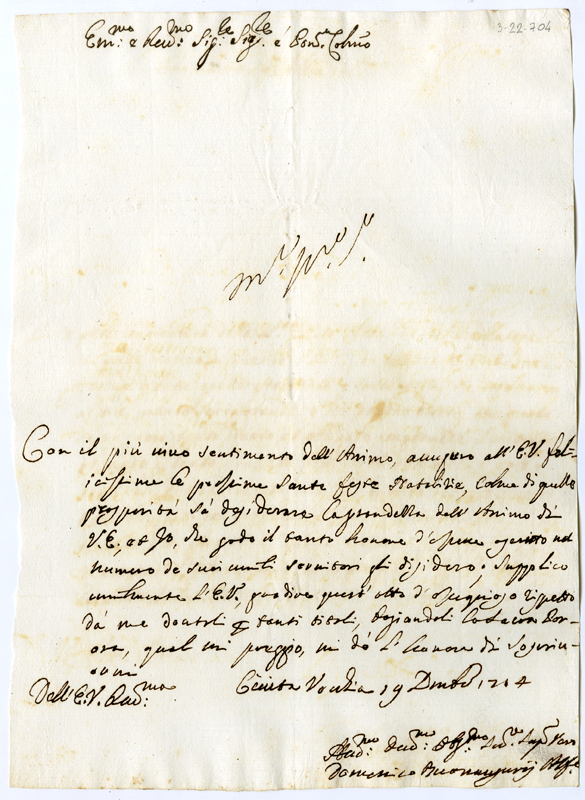 3-22-704
Em:mo e Rev:mo Sig:re Sig:re e Pon:e Colmo
Con il più vivo sentimento dell'Animo, auguro all'E.V. feli-
cissime le prossime Sante feste Natalizie, colme di quelle
prosperità sà desiderare la grandezza dell'Animo di
V.E., et Io, che godo il tanto honore d'essere ascritto nel
numero de suoi umili servitori gli desidero; Supplico
umilmente l'E.V. gradire quest'atto d'ossequioso rispetto
da me dovutoli p tanti titoli, baciandoli la Sacra Por-
pora, qual mi preggio, mi dò l'honore di Sottoscri-
vermi
Dell'E.V. Rev:ma
Civita Vecchia 19 Dmbre 1704
Domenico Buonaugurij